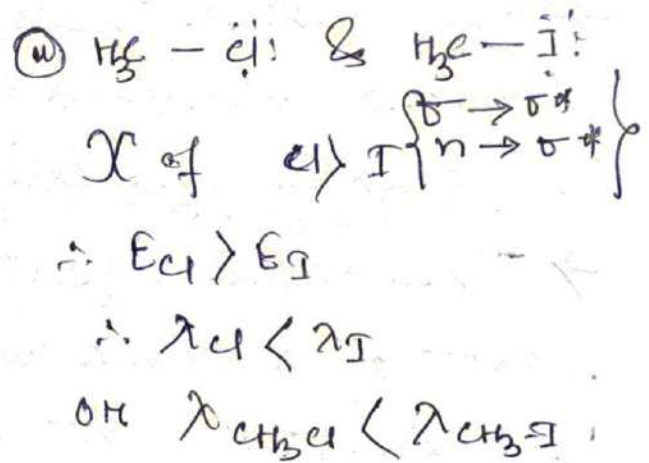 (iii) H₃C – Cl: & H₃C – I:
X of Cl > I { σ → σ*
n → σ* }
∴ E_Cl > E_I
∴ λ_Cl < λ_I
or λ_CH₃Cl < λ_CH₃-I